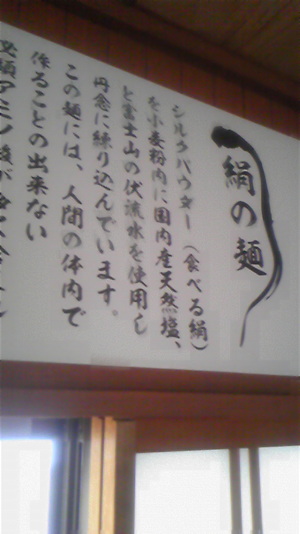 絹の麺
シルクパウダー（食べる絹）
を小麦粉内に国内産天然塩、
と富士山の伏流水を使用し
丹念に練り込んでいます。
この麺には、人間の体内で
作ることの出来ない
必須アミノ酸が